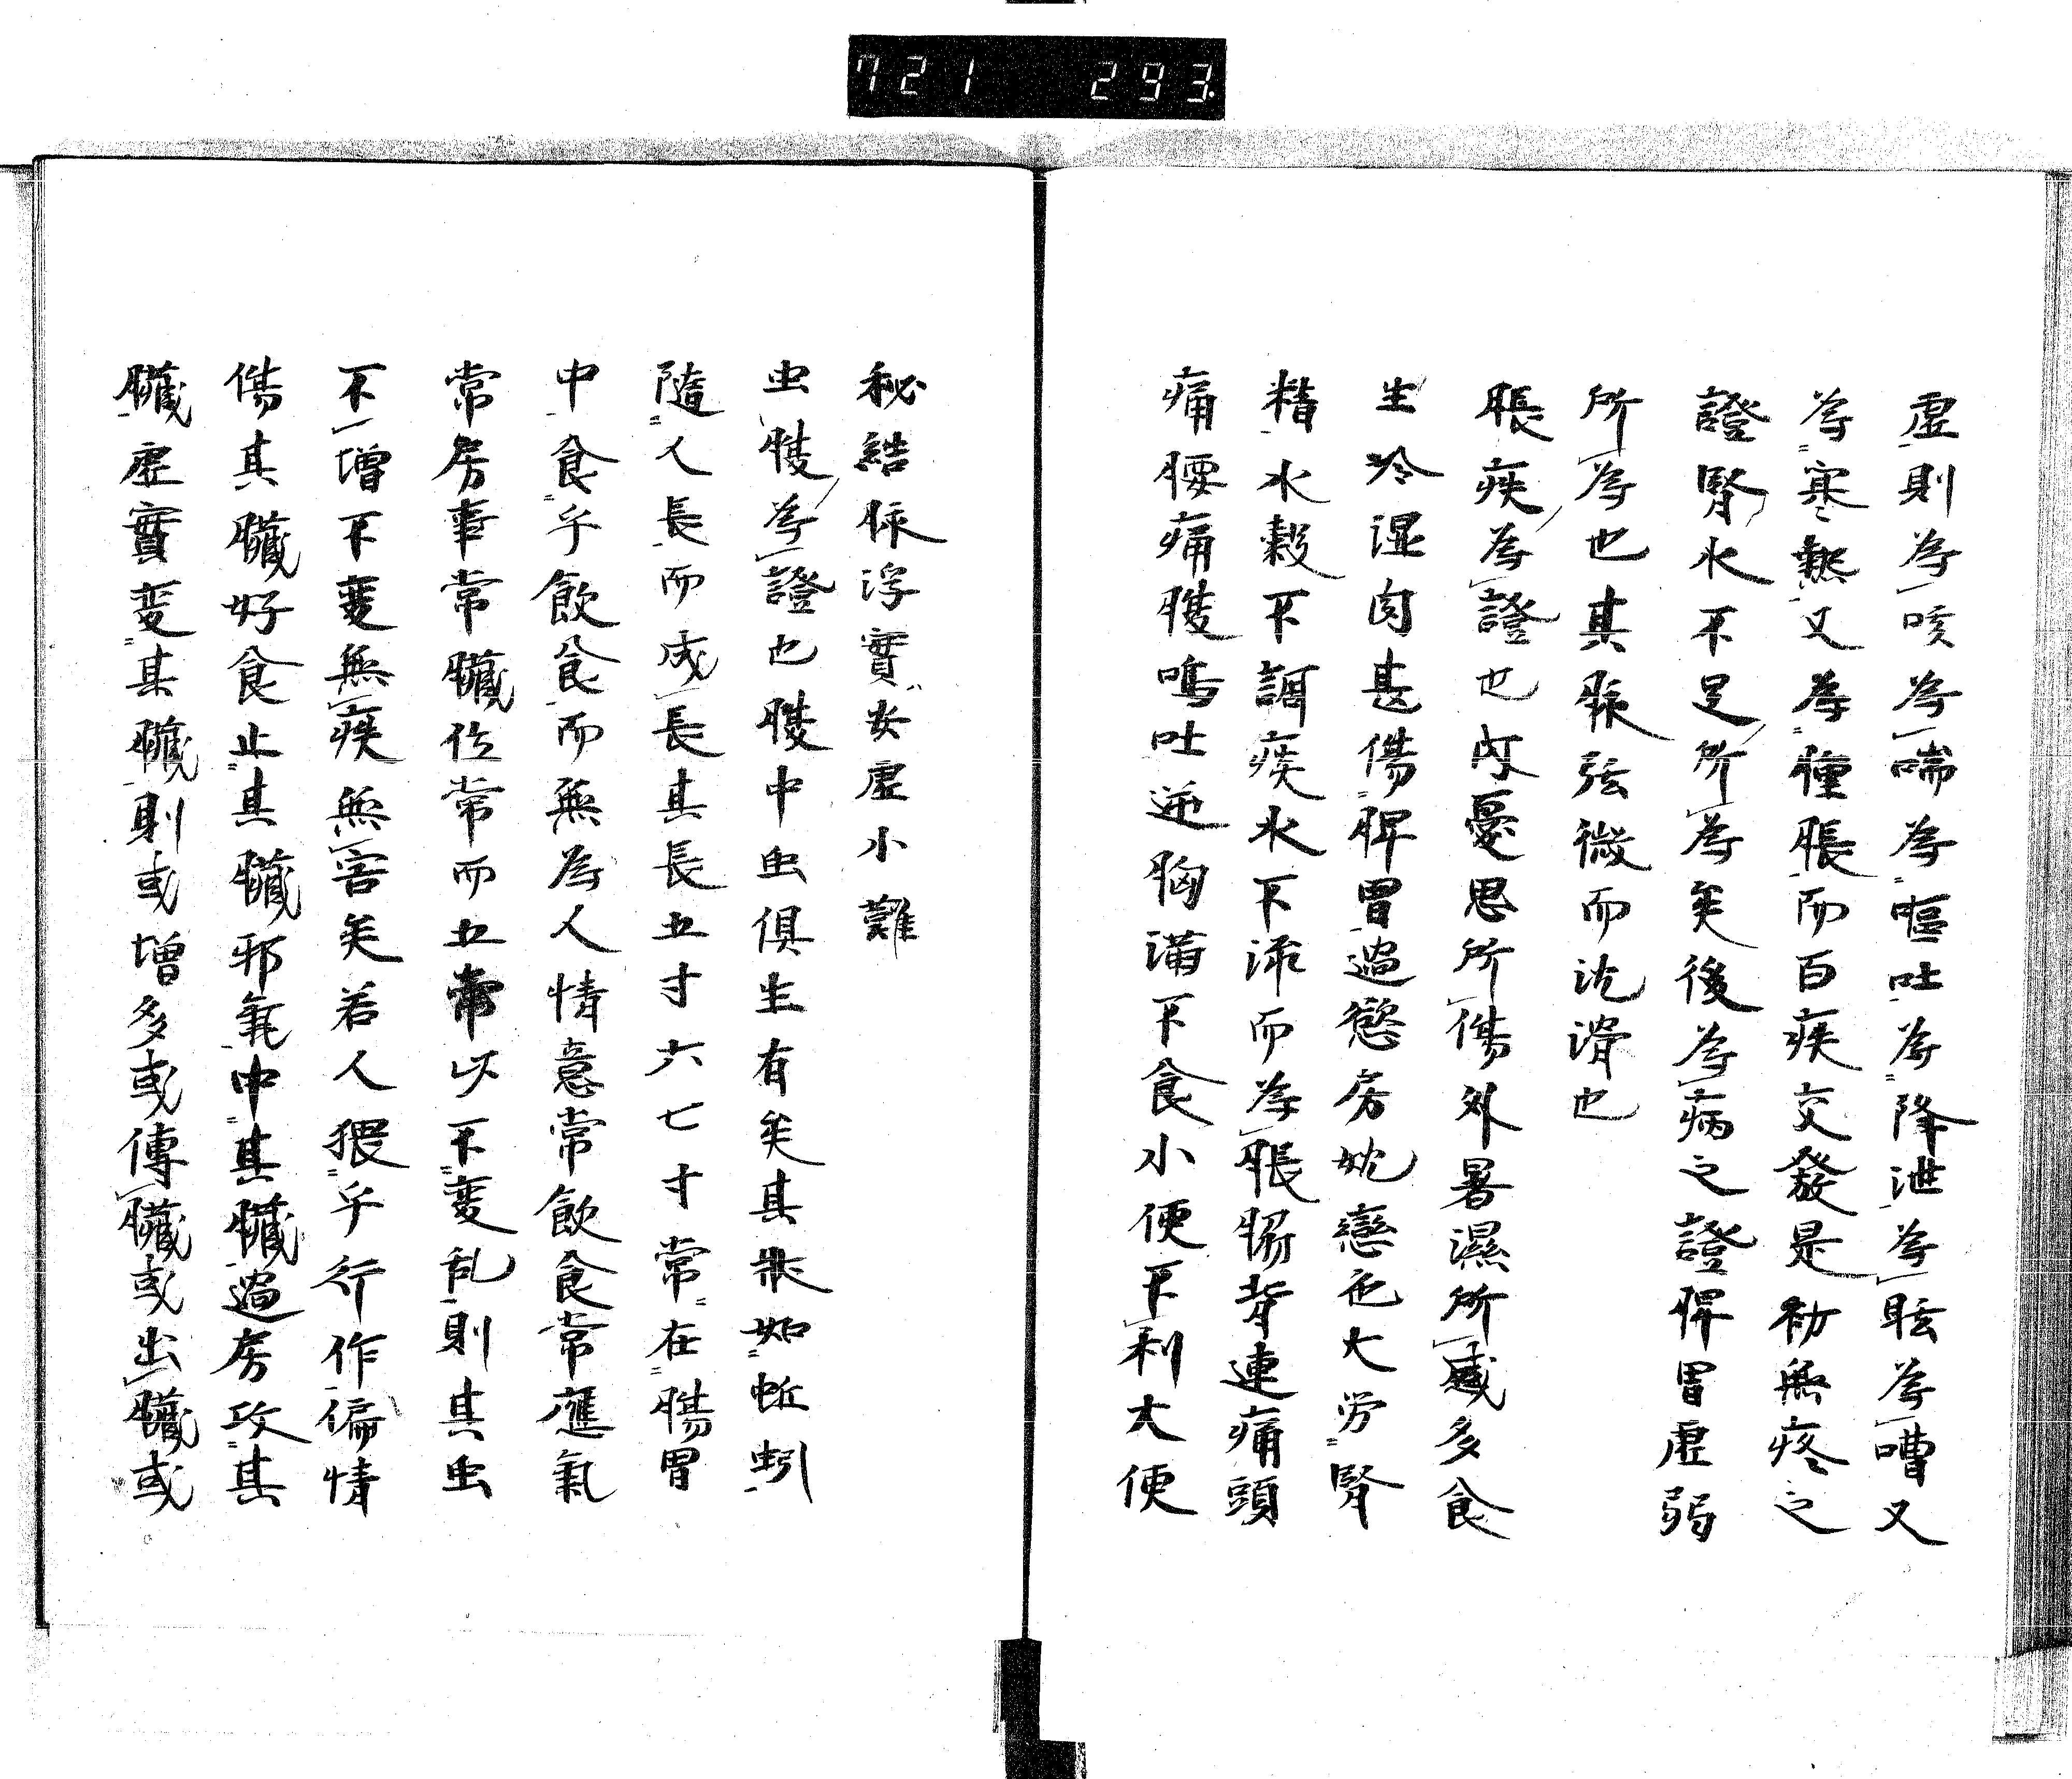 721 293
虚則為咳為喘為嘔吐為降泄為眩為嘈又
為寒熱又為腫脹而百疾交發是初無疼之
證腎水不足所為矣後為病之證脾胃虚弱
所為也其脉弦微而沈滑也
脹疾為證也内憂思所傷外暑濕所感多食
生冷湿肉甚傷脾胃過慾房妣戀色大労腎
精水穀不調痰水下流而為脹腸背連痛頭
痛腰痛腹鳴吐逆胸満不食小便不利大便
秘結脉浮實女虚小難
虫腹為證也腹中虫俱生有矣其状如蚯蚓
隨人長而成長其長五寸六七寸常在腸胃
中食乎飲食而無為人情意常飲食常應氣
常房事常臓位常而五常以不変乱則其虫
不增不変無疾無害矣若人猥乎行作偏情
傷其臓好食止其臓邪氣中其臓過房攻其
臓虚實変其臓則或増多或傳臓或出臓或